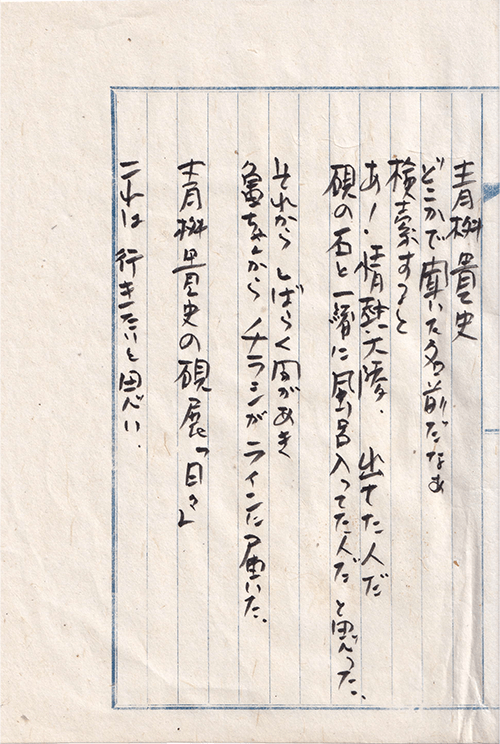 青栁貴史
どこかで聞いた名前だなぁ
検索すると
あー、情熱大陸、出てた人だ
硯の石と一緒に風呂入ってた人だと思った、
それからしばらく間があき
亀ちゃんからチラシがラインに届いた、
青栁貴史の硯展「日々」
これは行きたいと思い、